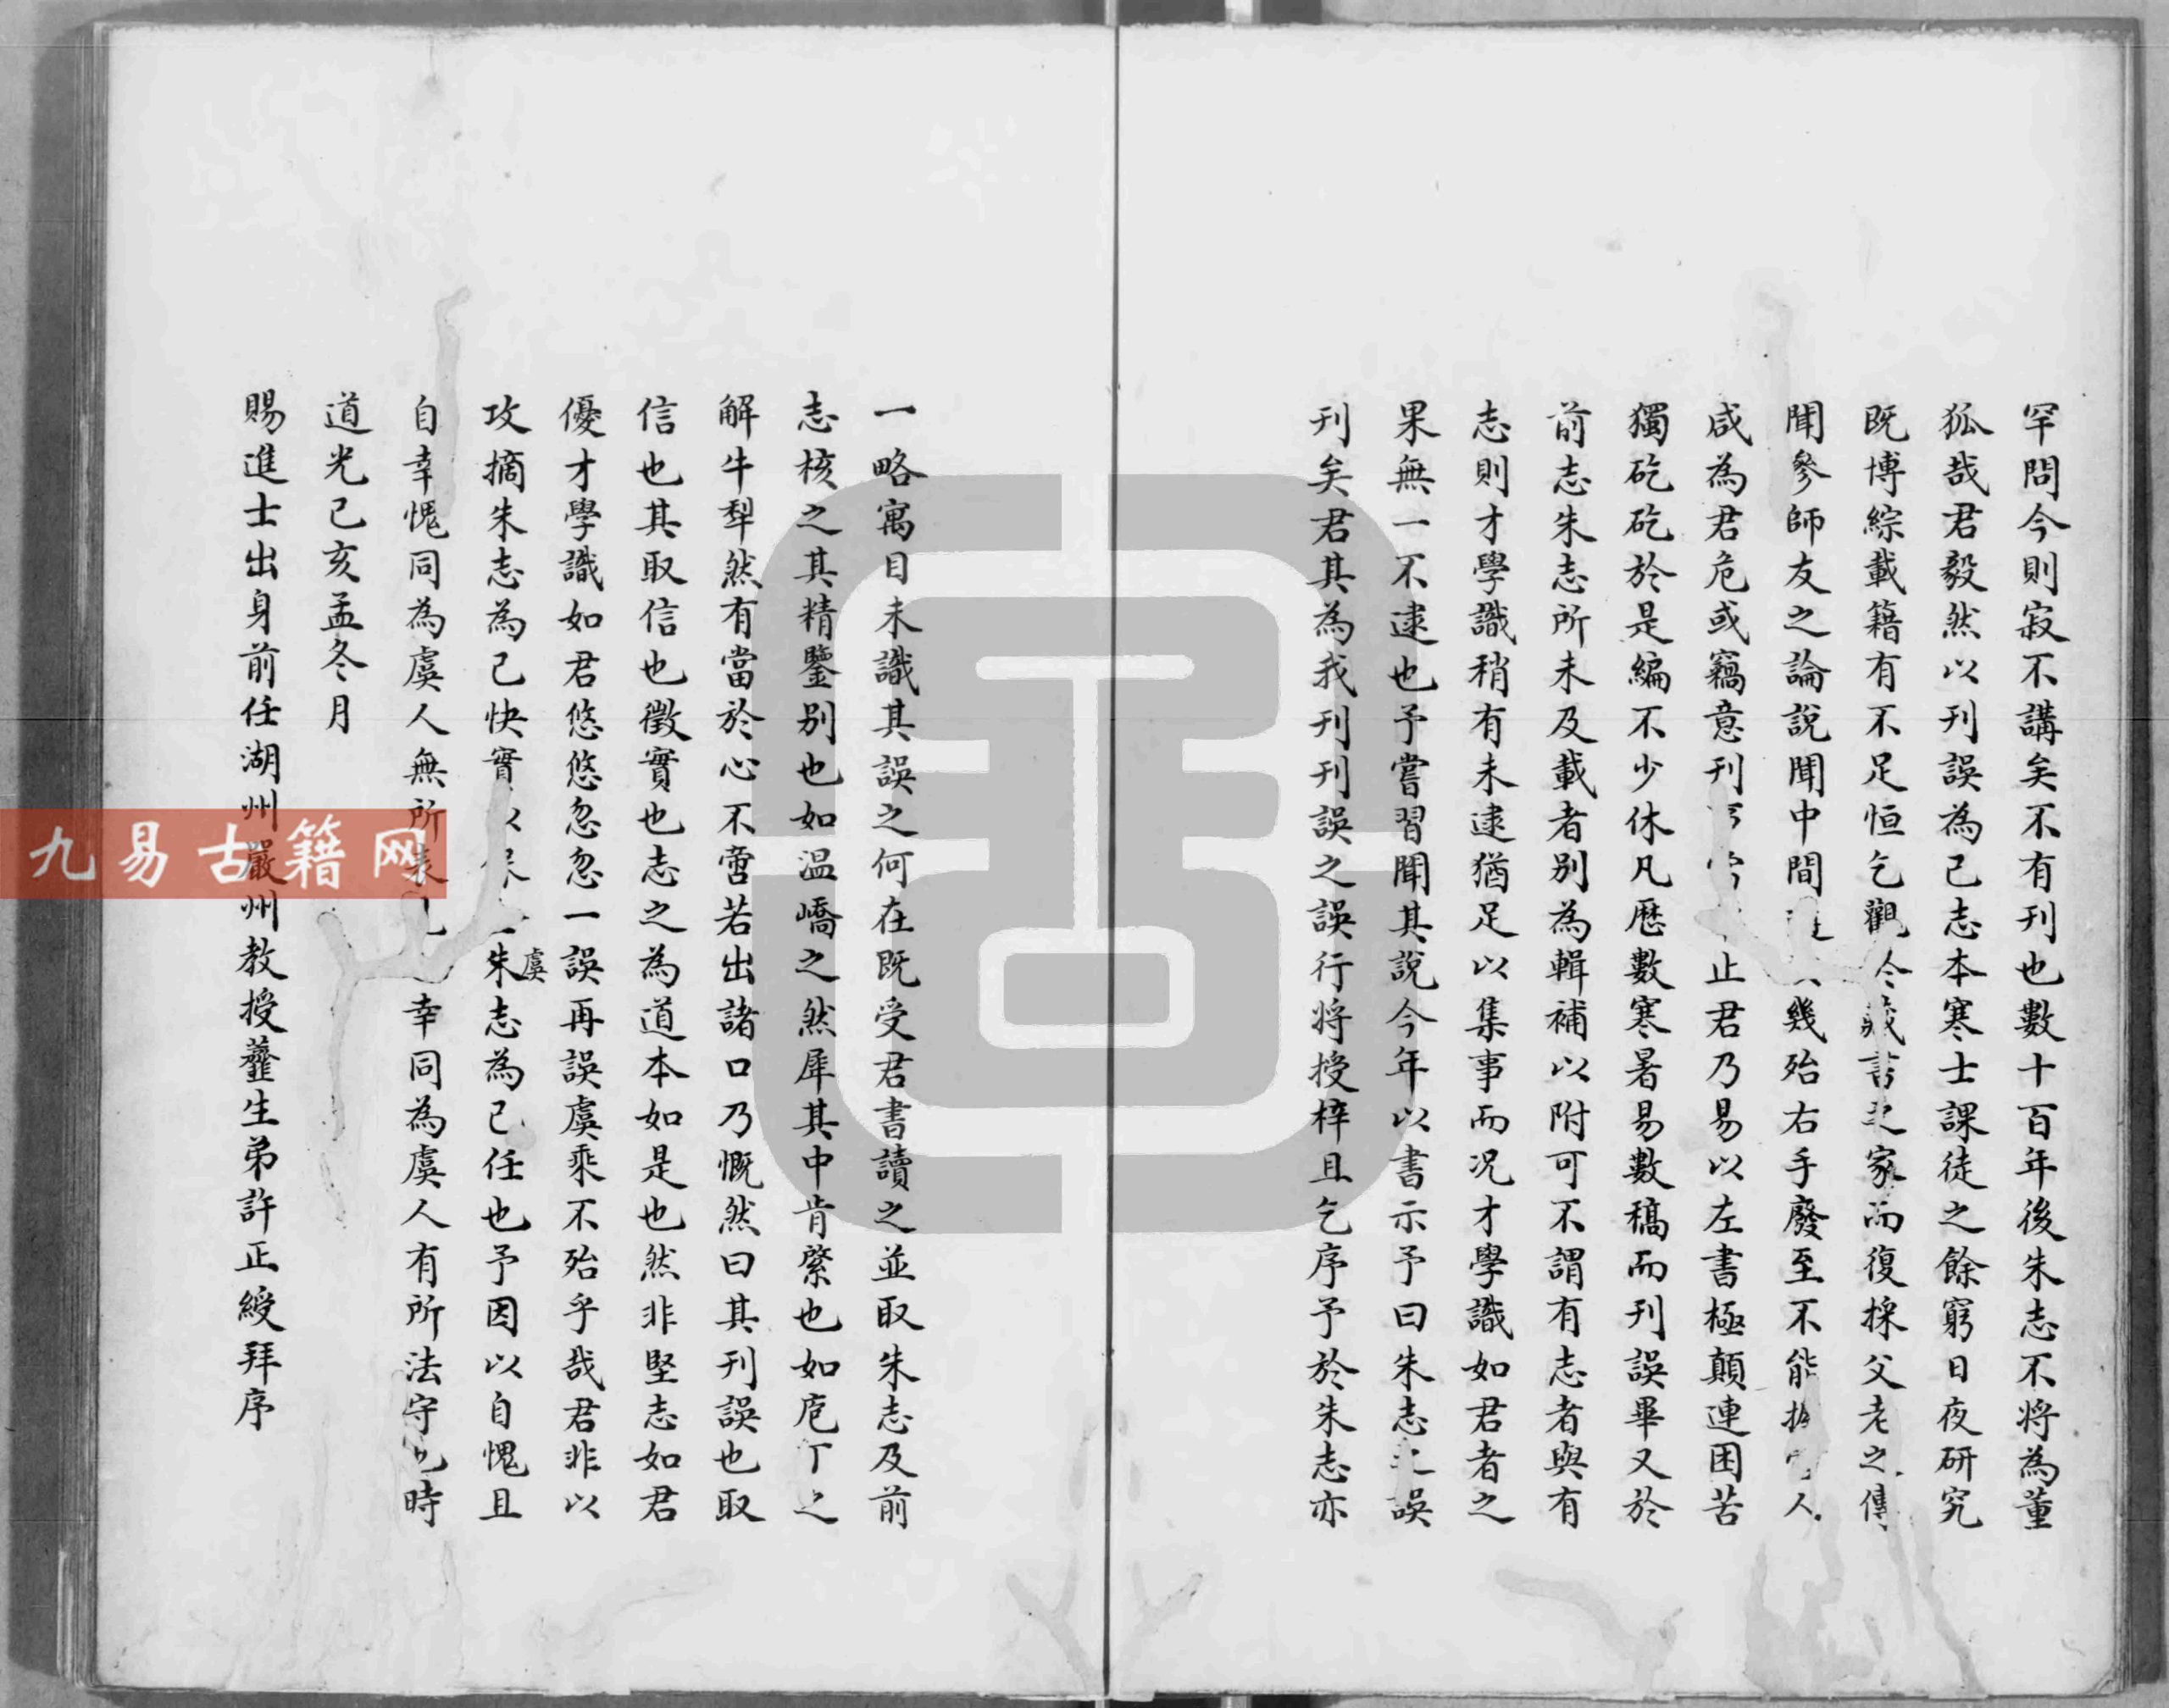 罕問今則寂不講矣不有刊也數十百年後朱志不將為董
狐哉君毅然以刊誤為己志本寒士課徒之餘窮日夜研究
既博綜載籍有不足恒乞觀今藏書之家而復採父老之傳
聞參師友之論說聞中間幾殆右手廢至不能握管人
咸為君危或竊意刊止君乃易以左書極顛連困苦
獨矻矻於是編不少休凡歷數寒暑易數稿而刊誤畢又於
前志朱志所未及載者別為輯補以附可不謂有志者與有
志則才學識稍有未逮猶足以集事而況才學識如君者之
果無一不逮也予嘗習聞其說今年以書示予曰朱志之誤
刊矣君其為我刊刊誤之誤行將授梓且乞序予於朱志亦
一略寓目未識其誤之何在既受君書讀之並取朱志及前
志核之其精鑒別也如温嶠之然犀其中肯綮也如庖丁之
解牛犁然有當於心不啻若出諸口乃慨然曰其刊誤也取
信也其取信也徵實也志之為道本如是也然非堅志如君
優才學識如君悠悠忽忽一誤再誤虞乘不殆乎哉君非以
攻摘朱志為己快實以朱虞志為己任也予因以自愧且
自幸愧同為虞人無所表幸同為虞人有所法守也時
道光己亥孟冬月
賜進士出身前任湖州嚴州教授虀生弟許正綬拜序
九易古籍网